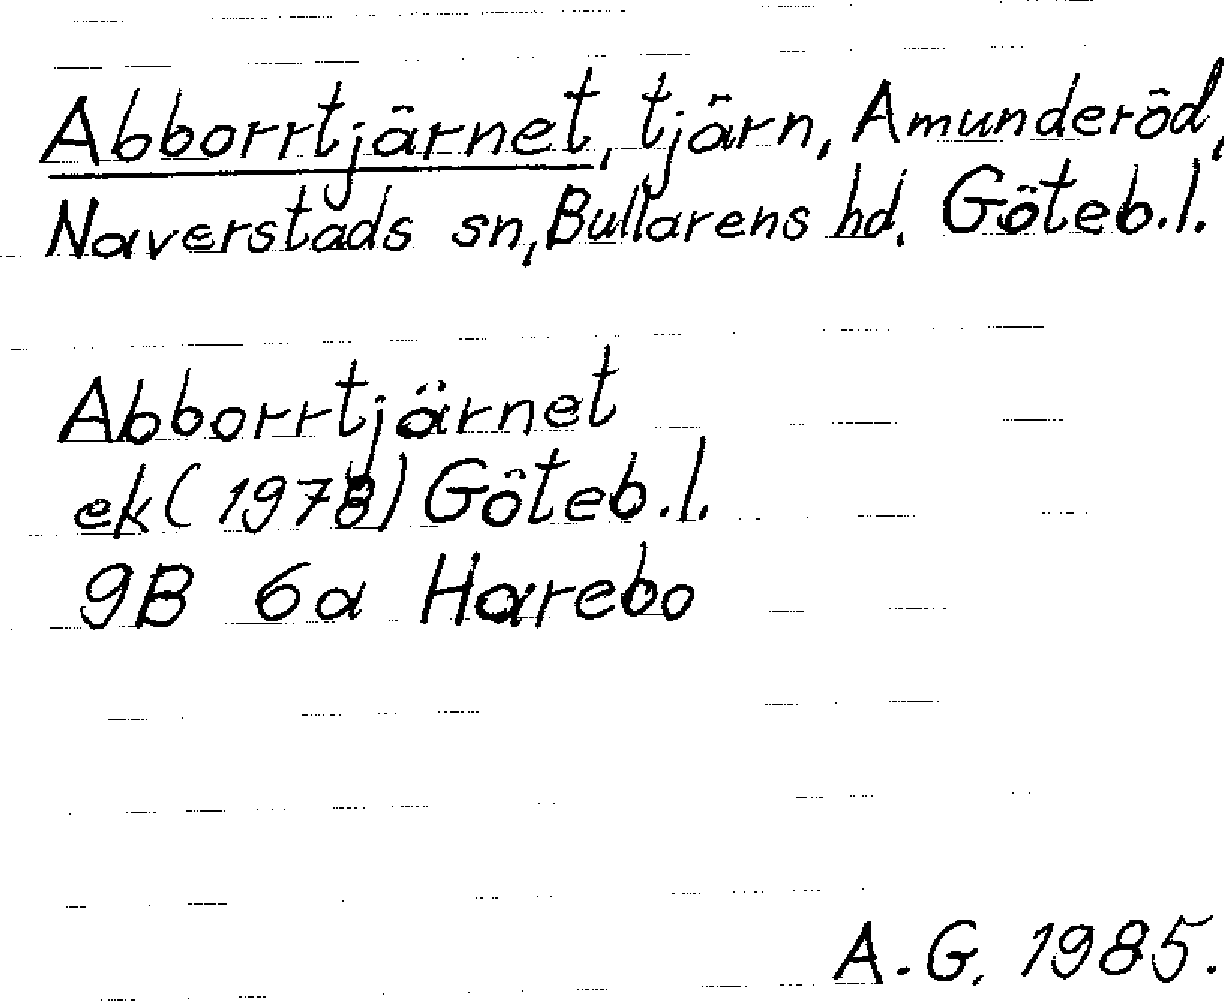 Abborrtjärnet, tjärn, Amunderöd,
Naverstads sn, Bullarens hd. Göteb.l.
Abborrtjärnet
ek (1978) Göteb.l.
9B 6a Harebo
A.G. 1985.